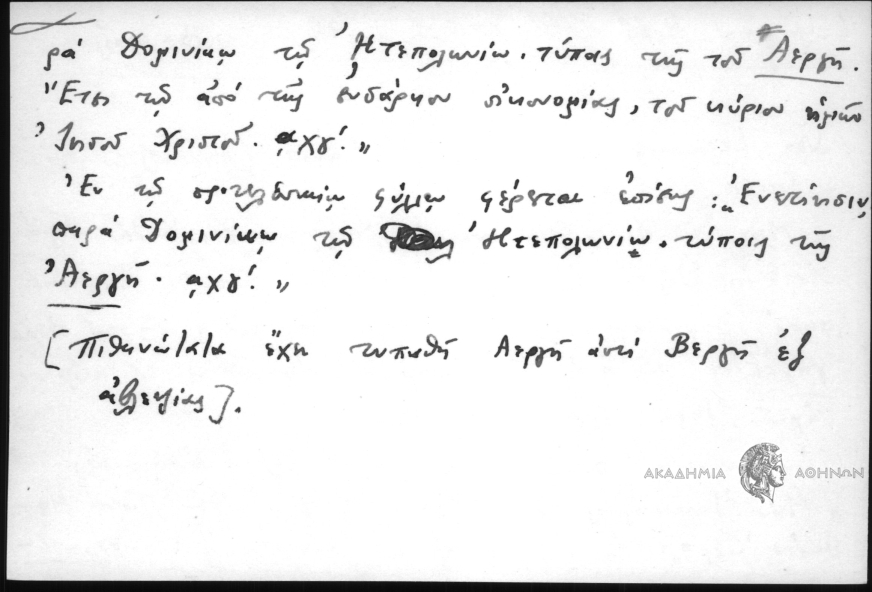 ρά Δομινίκῳ τῷ Ἠτεπολωνίῳ. τύποις τῆς τοῦ Ἀεργῆ.
Ἔτει τῷ ἀπό τῆς ἐνσάρκου οἰκονομίας, τοῦ κυρίου ἡμῶν
Ἰησοῦ Χριστοῦ. αχγ'. „
Ἐν τῷ προτελευταίῳ φύλλῳ φέρεται ἐπίσης: „Ἐνετίησιν,
παρά Δομινίκῳ τῷ Ἠτεπολωνίῳ. τύποις τῆς
Ἀεργῆ. αχγ'. „
[Πιθανώτατα ἔχει τυπωθῆ Ἀεργῆ ἀντί Βεργῆ ἐξ
ἀβλεψίας].
ΑΚΑΔΗΜΙΑ ΑΘΗΝΩΝ